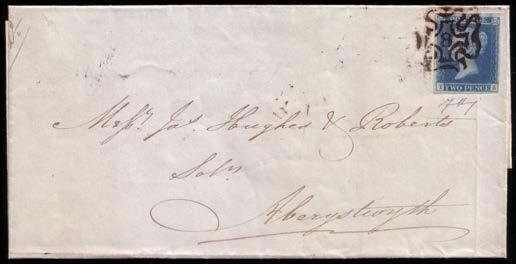 8
TWO PENCE
Messrs. Jas. Hughes & Roberts
Solrs
Aberystwyth